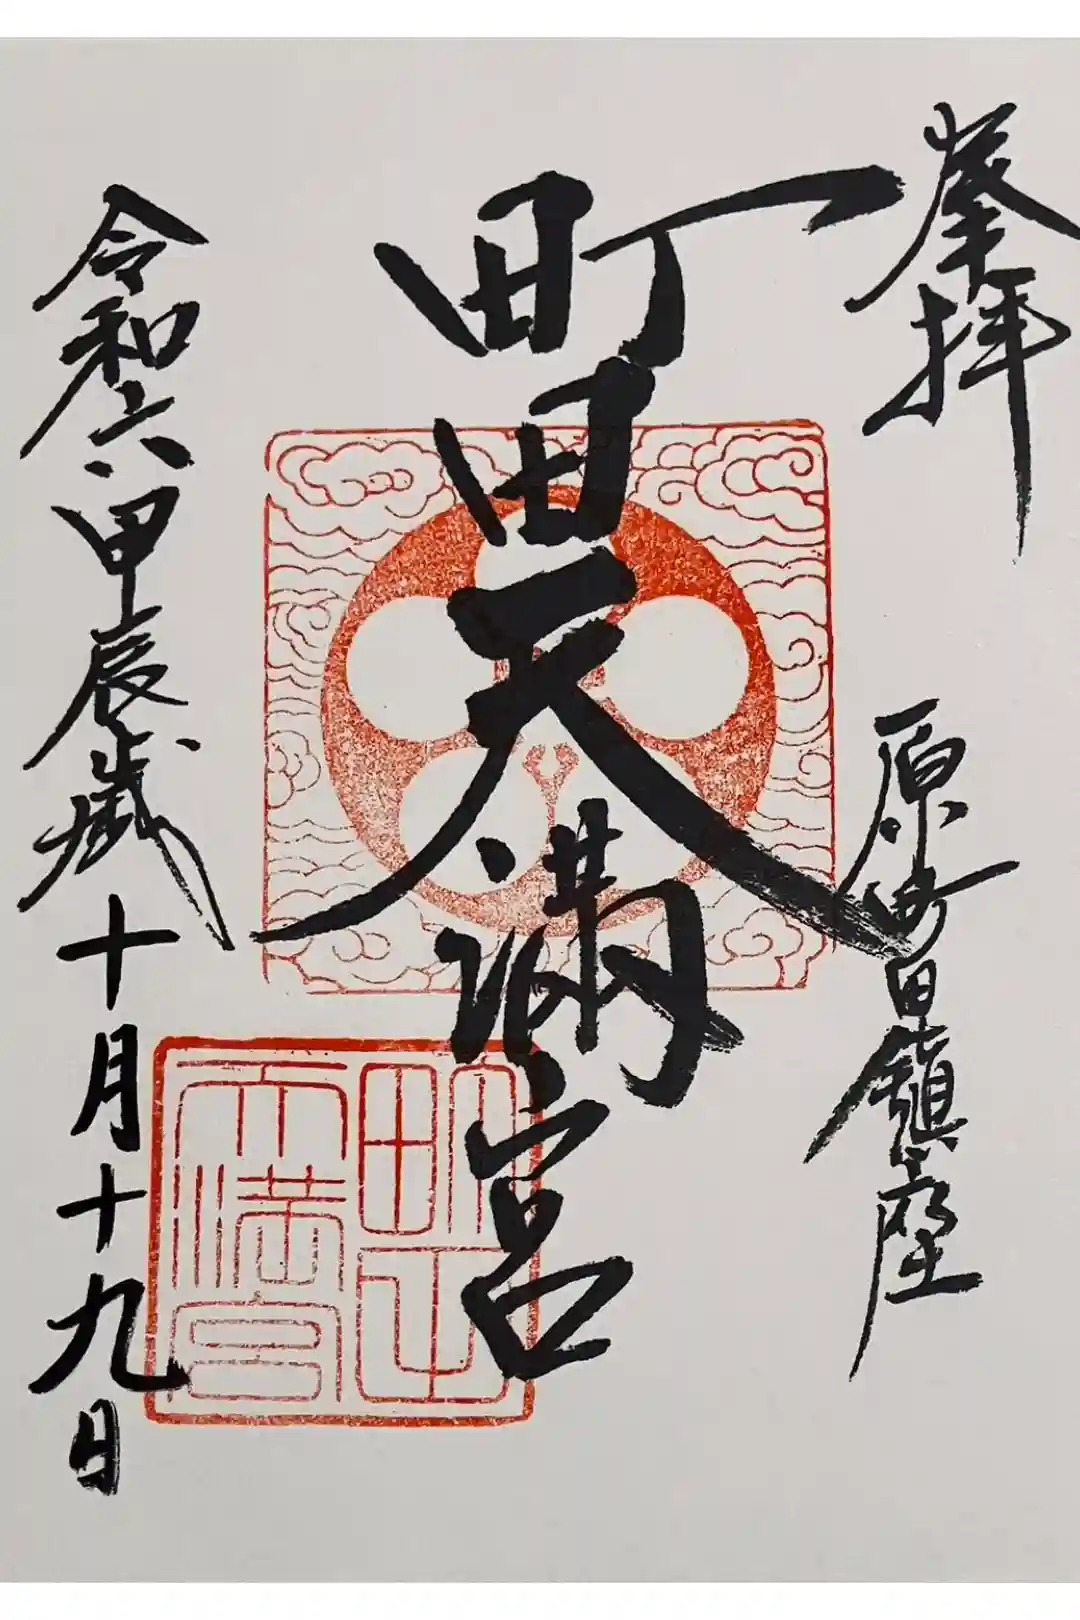 奉拝
原町田鎮座
町田天満宮
令和六甲辰歳十月十九日